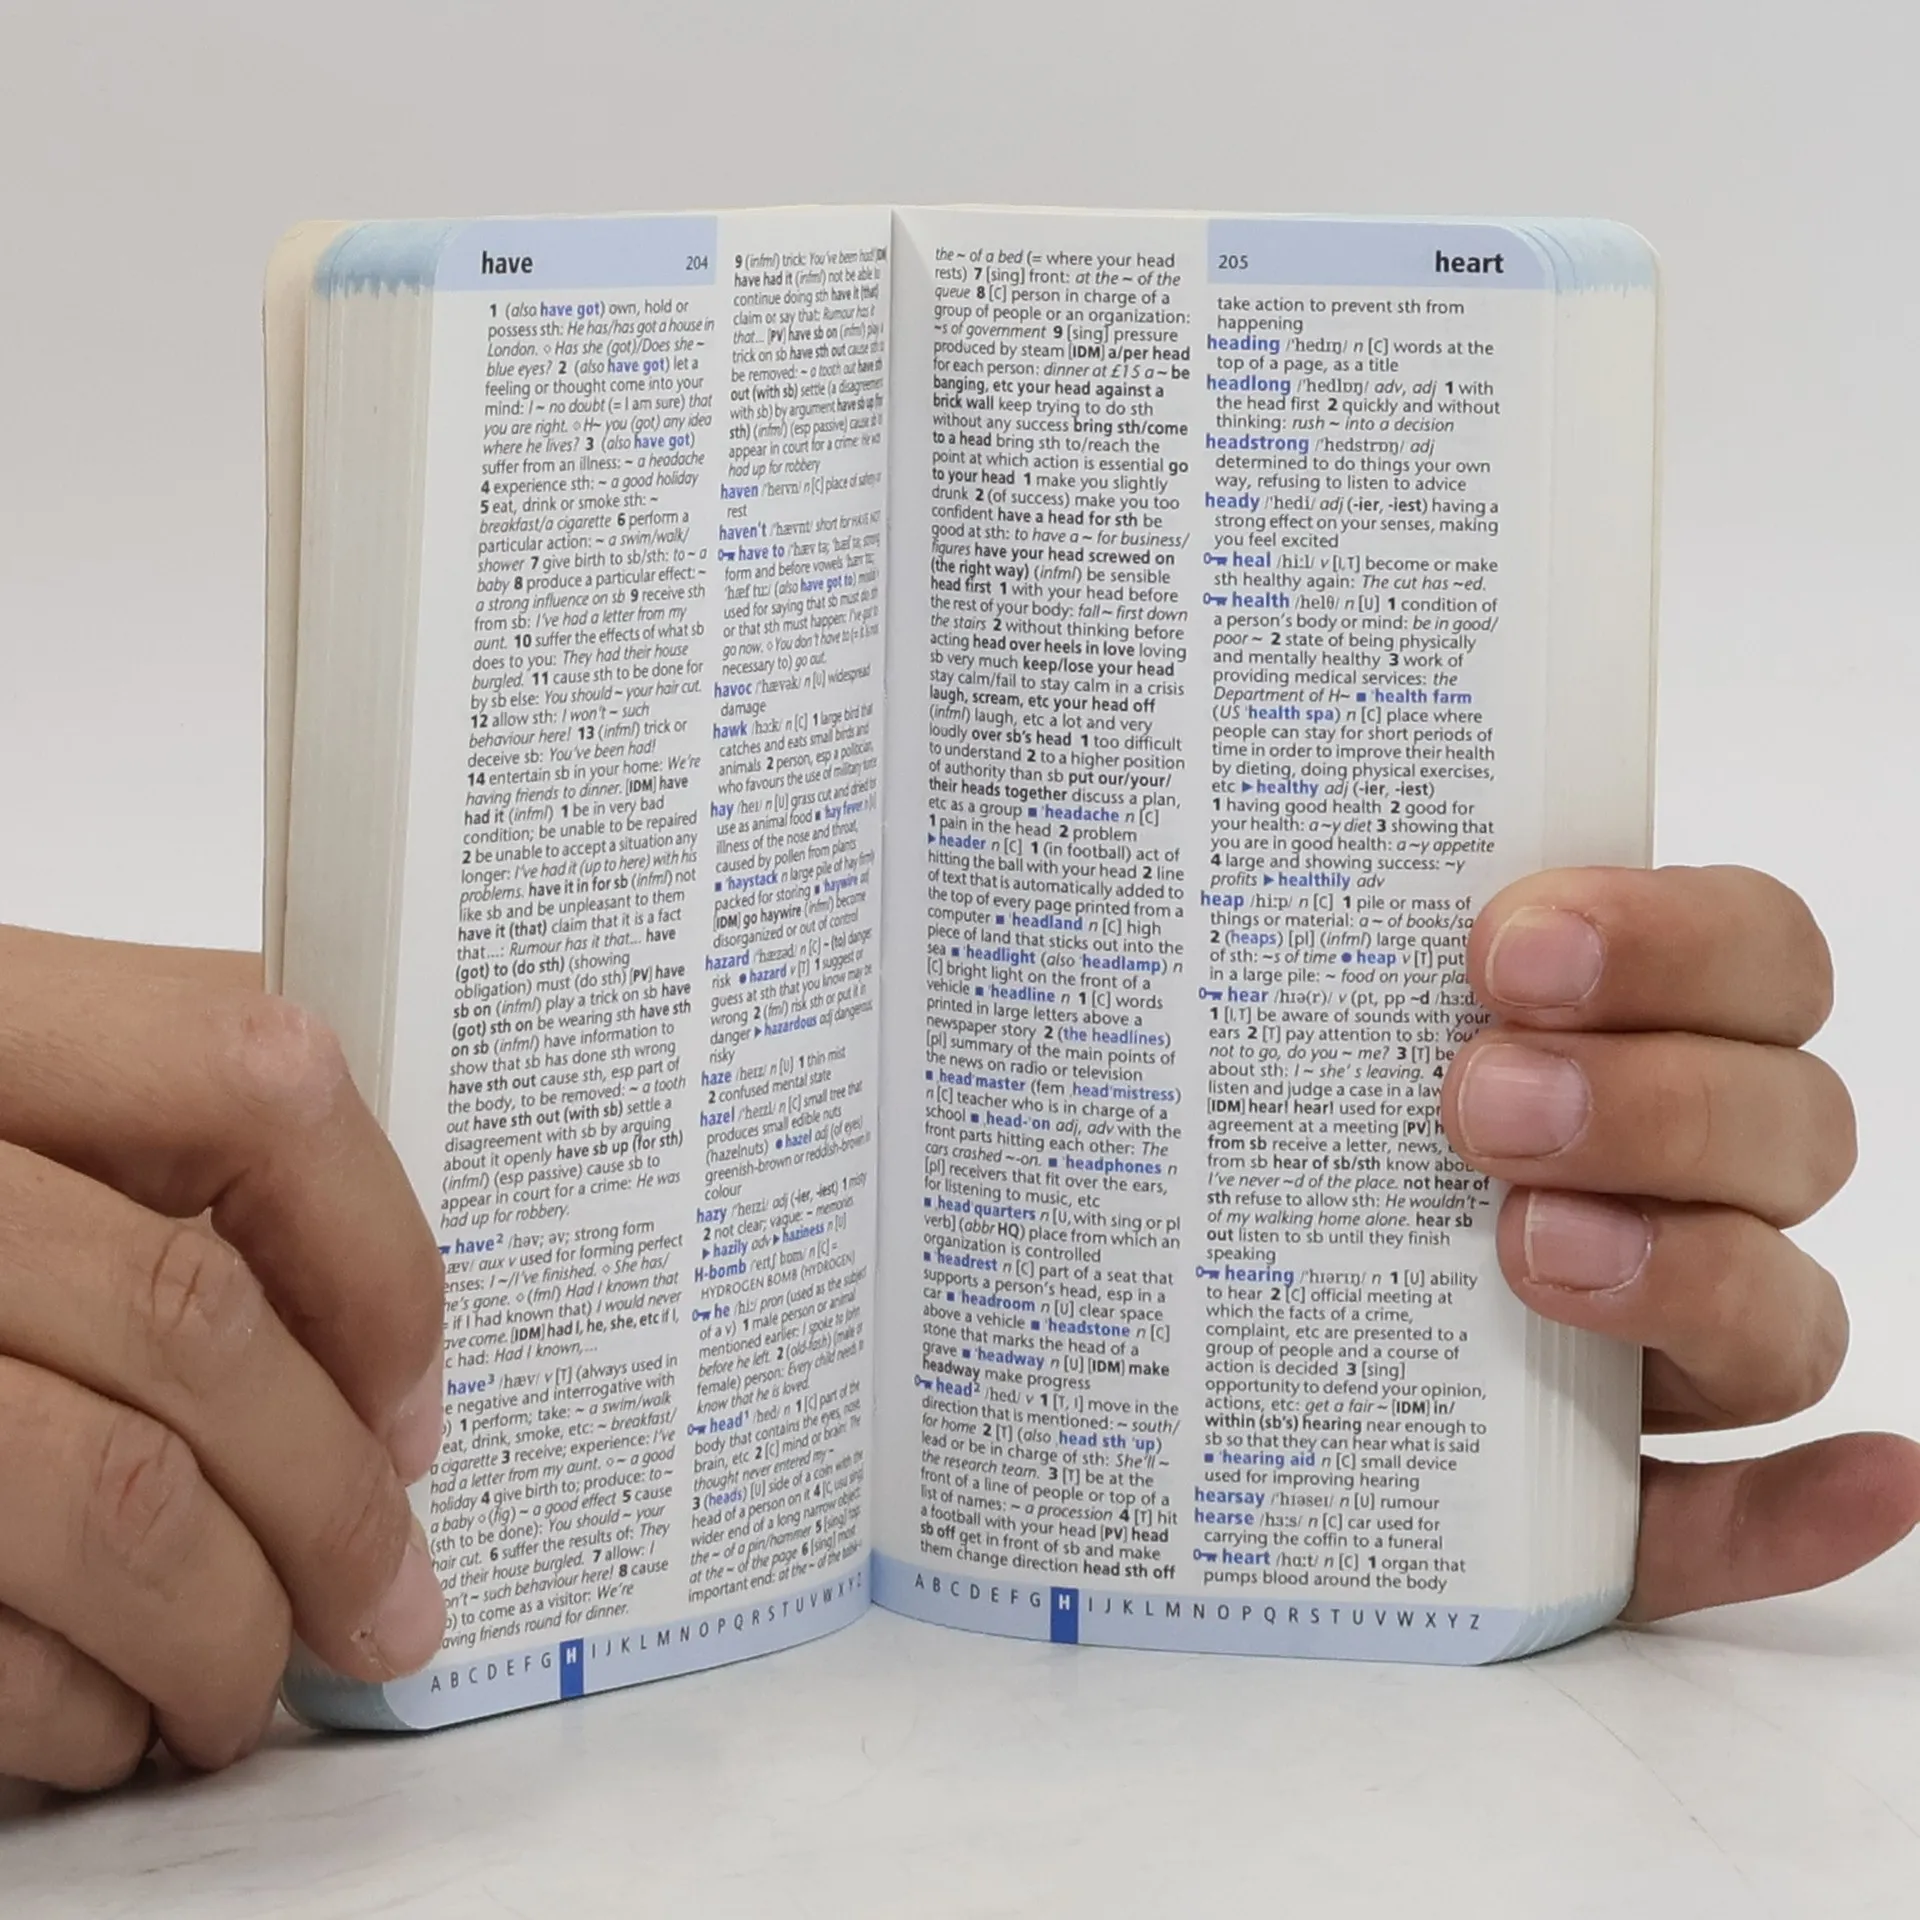 have 204
1 (also have got) own, hold or
possess sth: He has/has got a house in
London. ⋄ Has she (got)/Does she ~
blue eyes? 2 (also have got) let a
feeling or thought come into your
mind: I ~ no doubt (= I am sure) that
you are right. ⋄ H~ you (got) any idea
where he lives? 3 (also have got)
suffer from an illness: ~ a headache
4 experience sth: ~ a good holiday
5 eat, drink or smoke sth: ~
breakfast/a cigarette 6 perform a
particular action: ~ a swim/walk/
shower 7 give birth to sb/sth: to ~ a
baby 8 produce a particular effect: ~
a strong influence on sb 9 receive sth
from sb: I've had a letter from my
aunt. 10 suffer the effects of what sb
does to you: They had their house
burgled. 11 cause sth to be done for
by sb else: You should ~ your hair cut.
12 allow sth: I won't ~ such
behaviour here! 13 (infml) trick or
deceive sb: You've been had!
14 entertain sb in your home: We're
having friends to dinner. [IDM] have
had it (infml) 1 be in very bad
condition; be unable to be repaired
2 be unable to accept a situation any
longer: I've had it (up to here) with his
problems. have it in for sb (infml) not
like sb and be unpleasant to them
have it (that) claim that it is a fact
that...: Rumour has it that... have
(got) to (do sth) (showing
obligation) must (do sth) [PV] have
sb on (infml) play a trick on sb have
(got) sth on be wearing sth have sth
on sb (infml) have information to
show that sb has done sth wrong
have sth out cause sth, esp part of
the body, to be removed: ~ a tooth
out have sth out (with sb) settle a
disagreement with sb by arguing
about it openly have sb up (for sth)
(infml) (esp passive) cause sb to
appear in court for a crime: He was
had up for robbery.
have² /həv; əv; strong form
hæv/ aux v used for forming perfect
enses: I ~/I've finished. ⋄ She has/
he's gone. ⋄ (fml) Had I known that
= if I had known that) I would never
ave come. [IDM] had I, he, she, etc if I,
c had: Had I known,...
have³ /hæv/ v [T] (always used in
e negative and interrogative with
) 1 perform; take: ~ a swim/walk
eat, drink, smoke, etc: ~ breakfast/
a cigarette 3 receive; experience: I've
had a letter from my aunt. ⋄ ~ a good
holiday 4 give birth to; produce: to ~
a baby ⋄ (fig) ~ a good effect 5 cause
(sth to be done): You should ~ your
hair cut. 6 suffer the results of: They
ad their house burgled. 7 allow: I
on't ~ such behaviour here! 8 cause
) to come as a visitor: We're
aving friends round for dinner.
9 (infml) trick: You've been had! [IDM]
have had it (infml) not be able to
continue doing sth have it (that)
claim or say that: Rumour has it
that... [PV] have sb on (infml) play a
trick on sb have sth out cause sth to
be removed: ~ a tooth out have sth
out (with sb) settle (a disagreement
with sb) by argument have sb up for
sth) (infml) (esp passive) cause sb to
appear in court for a crime: He was
had up for robbery
haven /ˈheɪvn/ n [C] place of safety or
rest
haven't /ˈhævnt/ short for HAVE NOT
have to /ˈhæv tə; ˈhæf tə; strong
form and before vowels ˈhæv tuː;
ˈhæf tuː/ (also have got to) modal v
used for saying that sb must do sth
or that sth must happen: I've got to
go now. ⋄ You don't have to (= it is not
necessary to) go out.
havoc /ˈhævək/ n [U] widespread
damage
hawk /hɔːk/ n [C] 1 large bird that
catches and eats small birds and
animals 2 person, esp a politician,
who favours the use of military force
hay /heɪ/ n [U] grass cut and dried for
use as animal food ■ ˈhay fever n [U]
illness of the nose and throat,
caused by pollen from plants
■ ˈhaystack n large pile of hay firmly
packed for storing ■ ˈhaywire adj
[IDM] go haywire (infml) become
disorganized or out of control
hazard /ˈhæzəd/ n [C] ~ (to) danger;
risk ● hazard v [T] 1 suggest or
guess at sth that you know may be
wrong 2 (fml) risk sth or put it in
danger ▶ hazardous adj dangerous;
risky
haze /heɪz/ n [U] 1 thin mist
2 confused mental state
hazel /ˈheɪzl/ n [C] small tree that
produces small edible nuts
(hazelnuts) ● hazel adj (of eyes)
greenish-brown or reddish-brown in
colour
hazy /ˈheɪzi/ adj (-ier, -iest) 1 misty
2 not clear; vague: ~ memories
▶ hazily adv ▶ haziness n [U]
H-bomb /ˈeɪtʃ bɒm/ n [C] =
HYDROGEN BOMB (HYDROGEN)
he /hiː/ pron (used as the subject
of a v) 1 male person or animal
mentioned earlier: I spoke to John
before he left. 2 (old-fash) (male or
female) person: Every child needs to
know that he is loved.
head¹ /hed/ n 1 [C] part of the
body that contains the eyes, nose,
brain, etc 2 [C] mind or brain: The
thought never entered my ~
3 (heads) [U] side of a coin with the
head of a person on it 4 [C, usu sing]
wider end of a long narrow object:
the ~ of a pin/hammer 5 [sing] top:
at the ~ of the page 6 [sing] most
important end: at the ~ of the table ⋄
A B C D E F G H I J K L M N O P Q R S T U V W X Y Z
205 heart
the ~ of a bed (= where your head
rests) 7 [sing] front: at the ~ of the
queue 8 [C] person in charge of a
group of people or an organization:
~s of government 9 [sing] pressure
produced by steam [IDM] a/per head
for each person: dinner at £15 a ~ be
banging, etc your head against a
brick wall keep trying to do sth
without any success bring sth/come
to a head bring sth to/reach the
point at which action is essential go
to your head 1 make you slightly
drunk 2 (of success) make you too
confident have a head for sth be
good at sth: to have a ~ for business/
figures have your head screwed on
(the right way) (infml) be sensible
head first 1 with your head before
the rest of your body: fall ~ first down
the stairs 2 without thinking before
acting head over heels in love loving
sb very much keep/lose your head
stay calm/fail to stay calm in a crisis
laugh, scream, etc your head off
(infml) laugh, etc a lot and very
loudly over sb's head 1 too difficult
to understand 2 to a higher position
of authority than sb put our/your/
their heads together discuss a plan,
etc as a group ■ ˈheadache n [C]
1 pain in the head 2 problem
▶ header n [C] 1 (in football) act of
hitting the ball with your head 2 line
of text that is automatically added to
the top of every page printed from a
computer ■ ˈheadland n [C] high
piece of land that sticks out into the
sea ■ ˈheadlight (also ˈheadlamp) n
[C] bright light on the front of a
vehicle ■ ˈheadline n 1 [C] words
printed in large letters above a
newspaper story 2 (the headlines)
[pl] summary of the main points of
the news on radio or television
■ ˌheadˈmaster (fem ˌheadˈmistress)
n [C] teacher who is in charge of a
school ■ ˌhead-ˈon adj, adv with the
front parts hitting each other: The
cars crashed ~-on. ■ ˈheadphones n
[pl] receivers that fit over the ears,
for listening to music, etc
■ ˌheadˈquarters n [U, with sing or pl
verb] (abbr HQ) place from which an
organization is controlled
■ ˈheadrest n [C] part of a seat that
supports a person's head, esp in a
car ■ ˈheadroom n [U] clear space
above a vehicle ■ ˈheadstone n [C]
stone that marks the head of a
grave ■ ˈheadway n [U] [IDM] make
headway make progress
head² /hed/ v 1 [T, I] move in the
direction that is mentioned: ~ south/
for home 2 [T] (also ˌhead sth ˈup)
lead or be in charge of sth: She'll ~
the research team. 3 [T] be at the
front of a line of people or top of a
list of names: ~ a procession 4 [T] hit
a football with your head [PV] head
sb off get in front of sb and make
them change direction head sth off
take action to prevent sth from
happening
heading /ˈhedɪŋ/ n [C] words at the
top of a page, as a title
headlong /ˈhedlɒŋ/ adv, adj 1 with
the head first 2 quickly and without
thinking: rush ~ into a decision
headstrong /ˈhedstrɒŋ/ adj
determined to do things your own
way, refusing to listen to advice
heady /ˈhedi/ adj (-ier, -iest) having a
strong effect on your senses, making
you feel excited
heal /hiːl/ v [I,T] become or make
sth healthy again: The cut has ~ed.
health /helθ/ n [U] 1 condition of
a person's body or mind: be in good/
poor ~ 2 state of being physically
and mentally healthy 3 work of
providing medical services: the
Department of H~ ■ ˈhealth farm
(US ˈhealth spa) n [C] place where
people can stay for short periods of
time in order to improve their health
by dieting, doing physical exercises,
etc ▶ healthy adj (-ier, -iest)
1 having good health 2 good for
your health: a ~y diet 3 showing that
you are in good health: a ~y appetite
4 large and showing success: ~y
profits ▶ healthily adv
heap /hiːp/ n [C] 1 pile or mass of
things or material: a ~ of books/sa
2 (heaps) [pl] (infml) large quant
of sth: ~s of time ● heap v [T] put
in a large pile: ~ food on your pla
hear /hɪə(r)/ v (pt, pp ~d /hɜːd/
1 [I,T] be aware of sounds with your
ears 2 [T] pay attention to sb: You'
not to go, do you ~ me? 3 [T] be
about sth: I ~ she's leaving. 4
listen and judge a case in a law
[IDM] hear! hear! used for expr
agreement at a meeting [PV] h
from sb receive a letter, news,
from sb hear of sb/sth know abou
I've never ~d of the place. not hear of
sth refuse to allow sth: He wouldn't ~
of my walking home alone. hear sb
out listen to sb until they finish
speaking
hearing /ˈhɪərɪŋ/ n 1 [U] ability
to hear 2 [C] official meeting at
which the facts of a crime,
complaint, etc are presented to a
group of people and a course of
action is decided 3 [sing]
opportunity to defend your opinion,
actions, etc: get a fair ~ [IDM] in/
within (sb's) hearing near enough to
sb so that they can hear what is said
■ ˈhearing aid n [C] small device
used for improving hearing
hearsay /ˈhɪəseɪ/ n [U] rumour
hearse /hɜːs/ n [C] car used for
carrying the coffin to a funeral
heart /hɑːt/ n [C] 1 organ that
pumps blood around the body
A B C D E F G H I J K L M N O P Q R S T U V W X Y Z